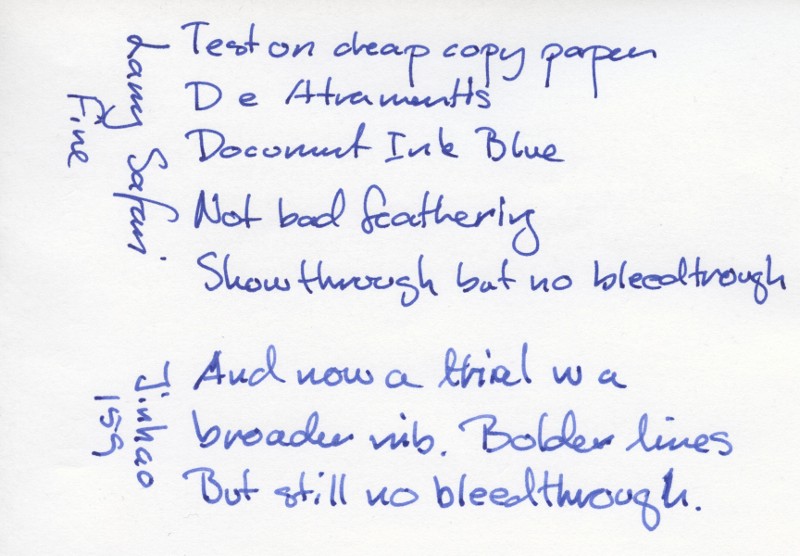 Lamy Safari
Fine
Test on cheap copy paper
De Atramentis
Document Ink Blue
Not bad feathering
Showthrough but no bleedtrough
Jinhao
159
And now a trial w a
broader nib. Bolder lines
But still no bleedthrough.